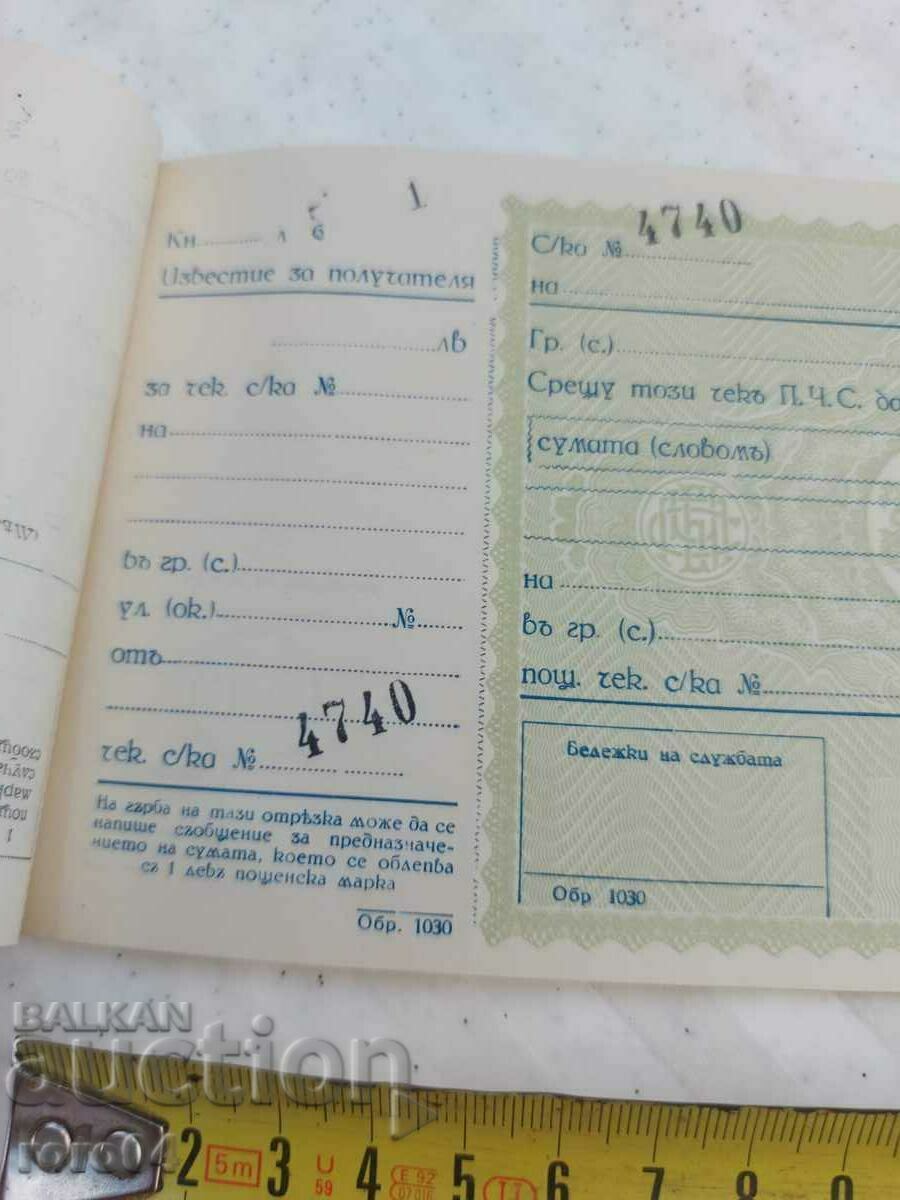 Кн.
1
Известие за получателя
лв
за чек. с/ка №
на
въ гр. (с.)
ул. (ок.) №
отъ
4740
чек. с/ка №
На гърба на тази отрѣзка може да се
напише съобщение за предназначе-
нието на сумата, което се облепва
съ 1 левъ пощенска марка
Обр. 1030
4740
С/ка №
на
Гр. (с.)
Срещу този чекъ П.Ч.С. да
сумата (словомъ)
на
въ гр. (с.)
пощ. чек. с/ка №
Бележки на службата
Обр 1030
BALKAN
auction
roro04
2 5m 3 U 59 4 E 92 5 6 7 8 9